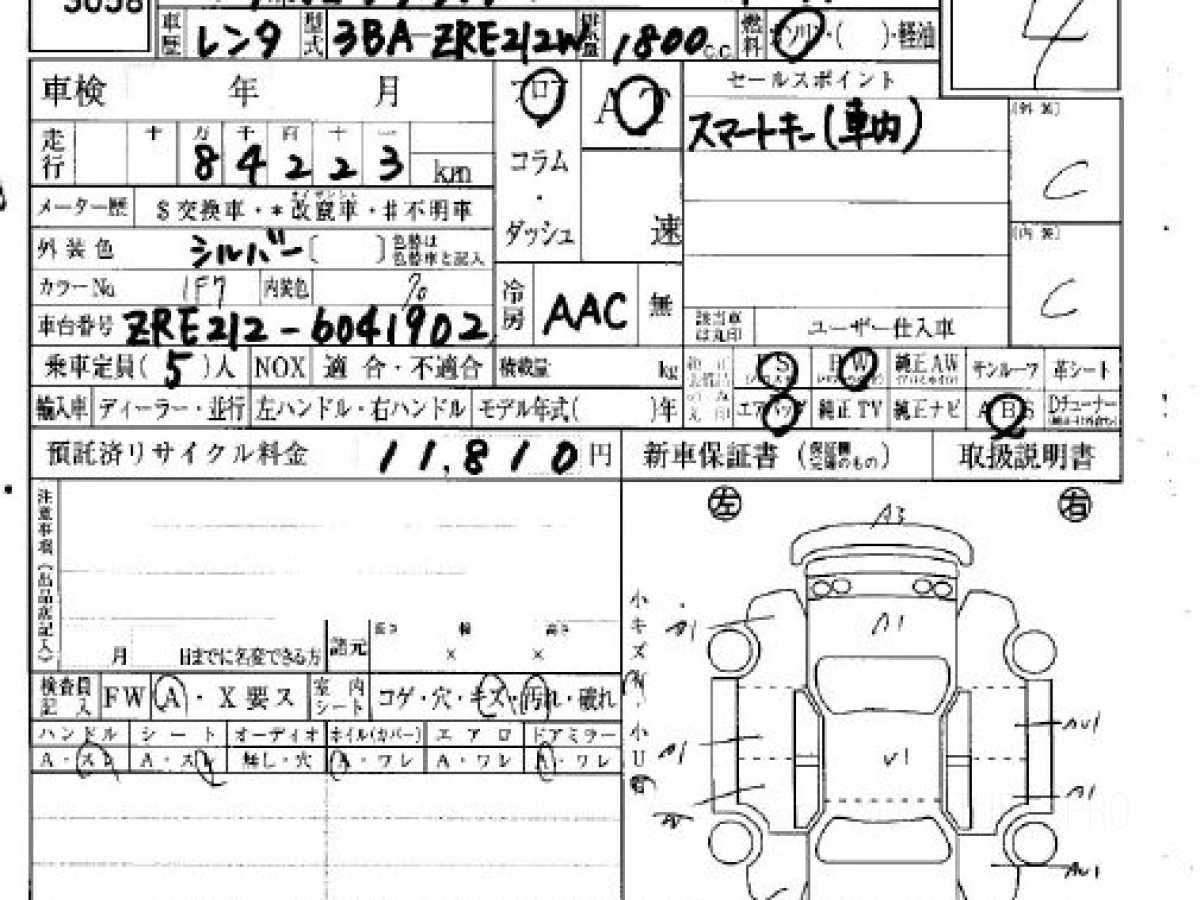 5058
車歴 レンタ 型式 3BA-ZRE212W 排気量 1800 C.C. 燃料 ガソリン・( )・軽油
4
車検 年 月 フロア AT セールスポイント
スマートキー(車内)
〔外装〕
C
走行 十 万 千 百 十 一
8 4 2 2 3 km
コラム
・
ダッシュ 速
メーター歴 $交換車・*改竄車・#不明車
外装色 シルバー〔 〕色替は色替車と記入
〔内装〕
C
カラーNo. 1F7 内装色
冷房 AAC 無
車台番号 ZRE212-6041902
該当車は丸印 ユーザー仕入車
乗車定員(5)人 NOX 適合・不適合 積載量 kg PS PW 純正AW サンルーフ 革シート
輸入車 ディーラー・並行 左ハンドル・右ハンドル モデル年式( )年 エアバッグ 純正TV 純正ナビ ABS Dチューナー
預託済リサイクル料金 11,810 円 新車保証書 取扱説明書
注意事項(出品店記入)
左 右
A3
小キズ
A1
A1
月 日までに名変できる方 諸元 長さ × 幅 × 高さ
検査員記入 FW A・X要ス 室内シート コゲ・穴・キズ・汚れ・破れ
小U
ハンドル シート オーディオ ホイル(カバー) エアロ ドアミラー
A・スレ A・スレ 無し・穴 A・ワレ A・ワレ A・ワレ
AU1
A1
U1
A1
AU1